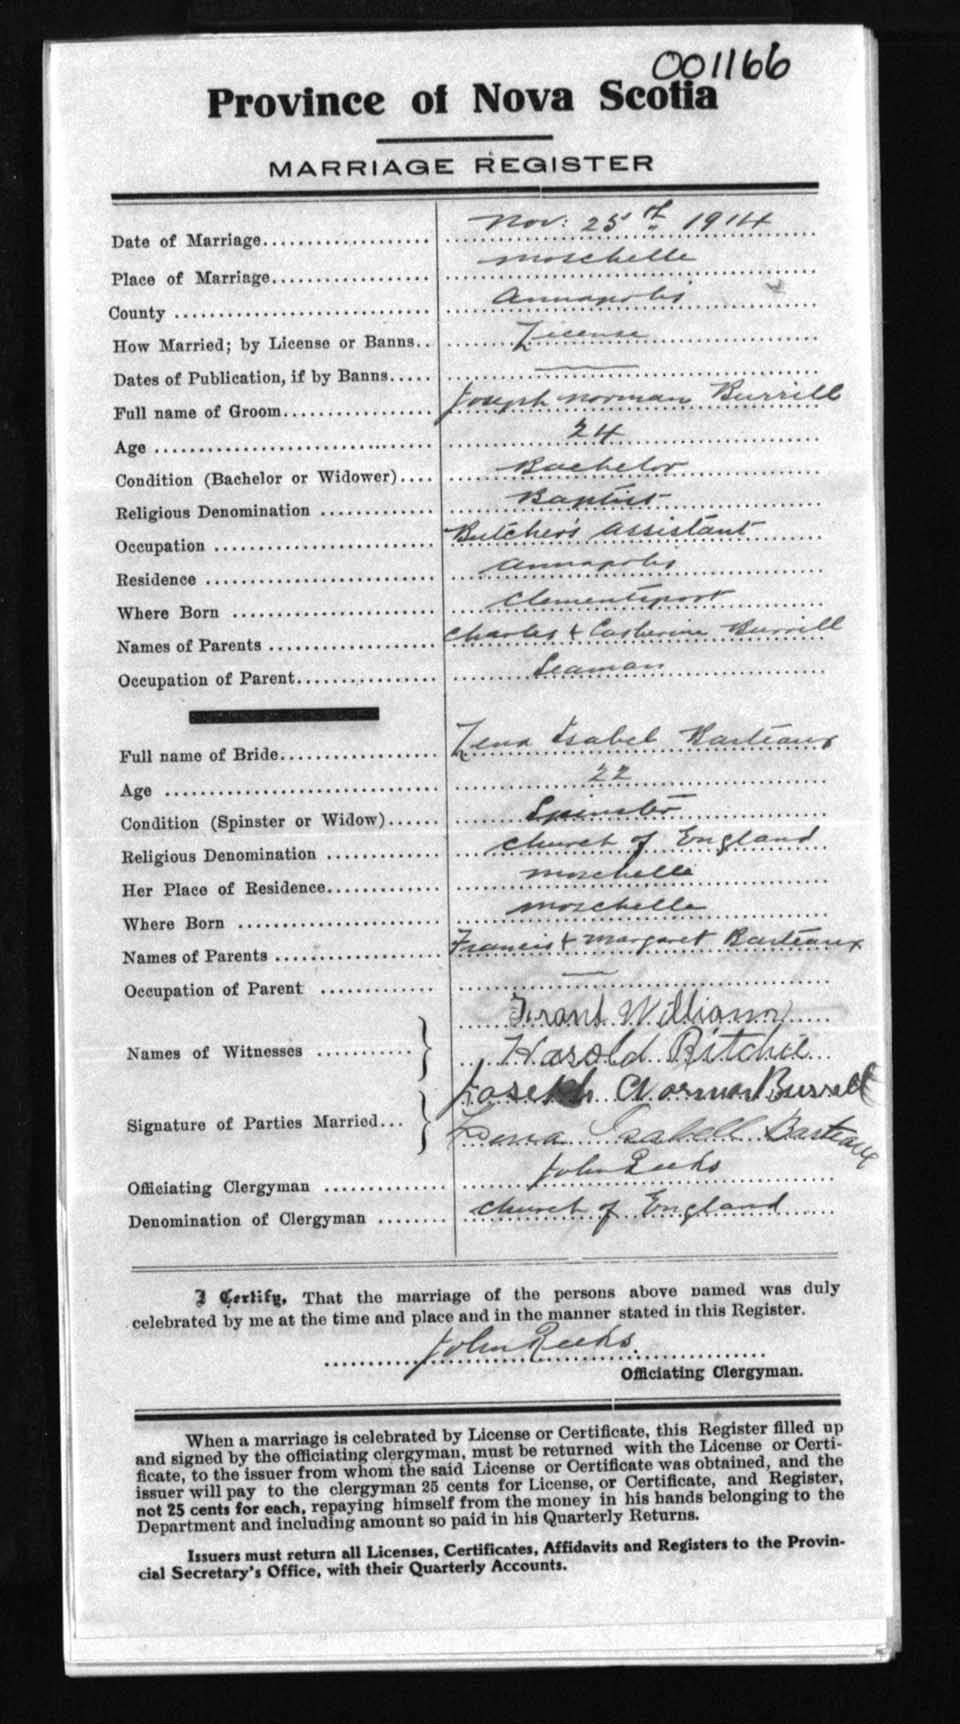 001166
Province of Nova Scotia
MARRIAGE REGISTER
Date of Marriage................... Nov: 25th 1914
Place of Marriage.................. Moschelle
County ............................ Annapolis
How Married; by License or Banns.. License
Dates of Publication, if by Banns..... ——
Full name of Groom................ Joseph Norman Burrill
Age .............................. 24
Condition (Bachelor or Widower).... Bachelor
Religious Denomination ............ Baptist
Occupation ........................ Butcher's assistant
Residence ......................... Annapolis
Where Born ...................... Clementsport
Names of Parents .................. Charles & Catherine Burrill
Occupation of Parent............... Seaman
Full name of Bride................. Lena Isabel Barteaux
Age .............................. 22
Condition (Spinster or Widow)...... Spinster
Religious Denomination ............ Church of England
Her Place of Residence............. Moschelle
Where Born ...................... Moschelle
Names of Parents .................. Francis & Margaret Barteaux
Occupation of Parent ............. ——
Names of Witnesses ........... } Williams
Harold Ritchie
Signature of Parties Married... } Joseph Norman Burrell
Lena Isabell Barteaux
Officiating Clergyman ............. John Reeks
Denomination of Clergyman ........ Church of England
I Certify, That the marriage of the persons above named was duly
celebrated by me at the time and place and in the manner stated in this Register.
John Reeks.
Officiating Clergyman.
When a marriage is celebrated by License or Certificate, this Register filled up
and signed by the officiating clergyman, must be returned with the License or Certi-
ficate, to the issuer from whom the said License or Certificate was obtained, and the
issuer will pay to the clergyman 25 cents for License, or Certificate, and Register,
not 25 cents for each, repaying himself from the money in his hands belonging to the
Department and including amount so paid in his Quarterly Returns.
Issuers must return all Licenses, Certificates, Affidavits and Registers to the Provin-
cial Secretary's Office, with their Quarterly Accounts.